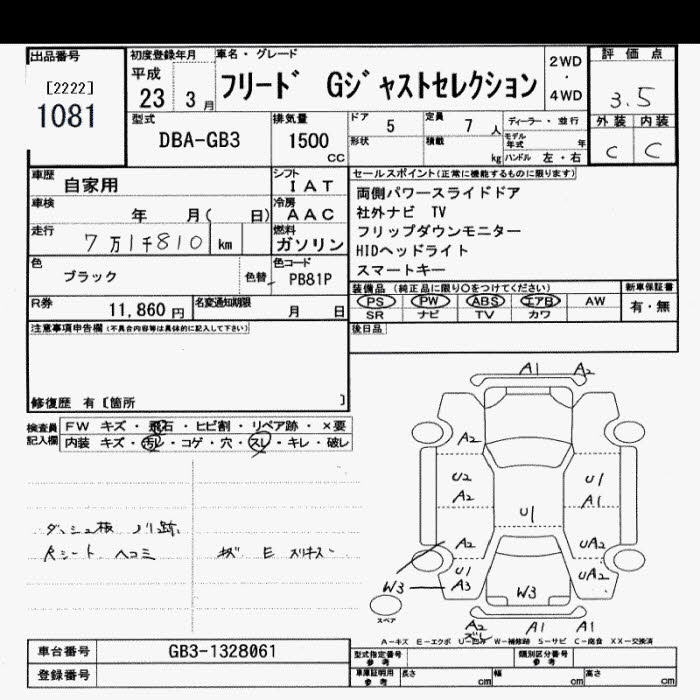 出品番号
[2222]
1081
初度登録年月
平成
23 3 月
車名・グレード
フリード Gジャストセレクション
2WD
・
4WD
評価点
3.5
外装 内装
C C
型式
DBA-GB3
排気量
1500
cc
ドア 5
定員 7 人
ディーラー・並行
形状
積載 kg
モデル年式 年
ハンドル 左・右
車歴
自家用
シフト
IAT
車検
年 月( 日)
冷房
AAC
走行
7万1千810 km
燃料
ガソリン
色
ブラック
色替
色コード
PB81P
R券
11,860 円
名変通知期限
月 日
セールスポイント(正常に機能するものに限ります)
両側パワースライドドア
社外ナビ TV
フリップダウンモニター
HIDヘッドライト
スマートキー
装備品 (純正品に限り○をつけてください)
新車保証書
PS PW ABS エアB AW
SR ナビ TV カワ
有・無
後日品
注意事項申告欄(不具合内容等は具体的に記入して下さい)
修復歴 有〔箇所 〕
検査員
記入欄
FW キズ・飛石・ヒビ割・リペア跡・×要
内装 キズ・汚レ・コゲ・穴・スレ・キレ・破レ
ダッシュ板 ノリ跡
Rシート ヘコミ
キズ E スリキズ
A1 A2
A2
U2
A2
U1
A1
U1
A2
UA2
U1
A3
UA2
W3
W3
スペア
A2
ズレ
A1 A1
A-キズ E-エクボ U-凹み W-補修跡 S-サビ C-腐食 XX-交換済
車台番号
GB3-1328061
登録番号
型式指定番号
参考
類別区分番号
参考
車庫証明用
参考
長さ cm
幅 cm
高さ cm